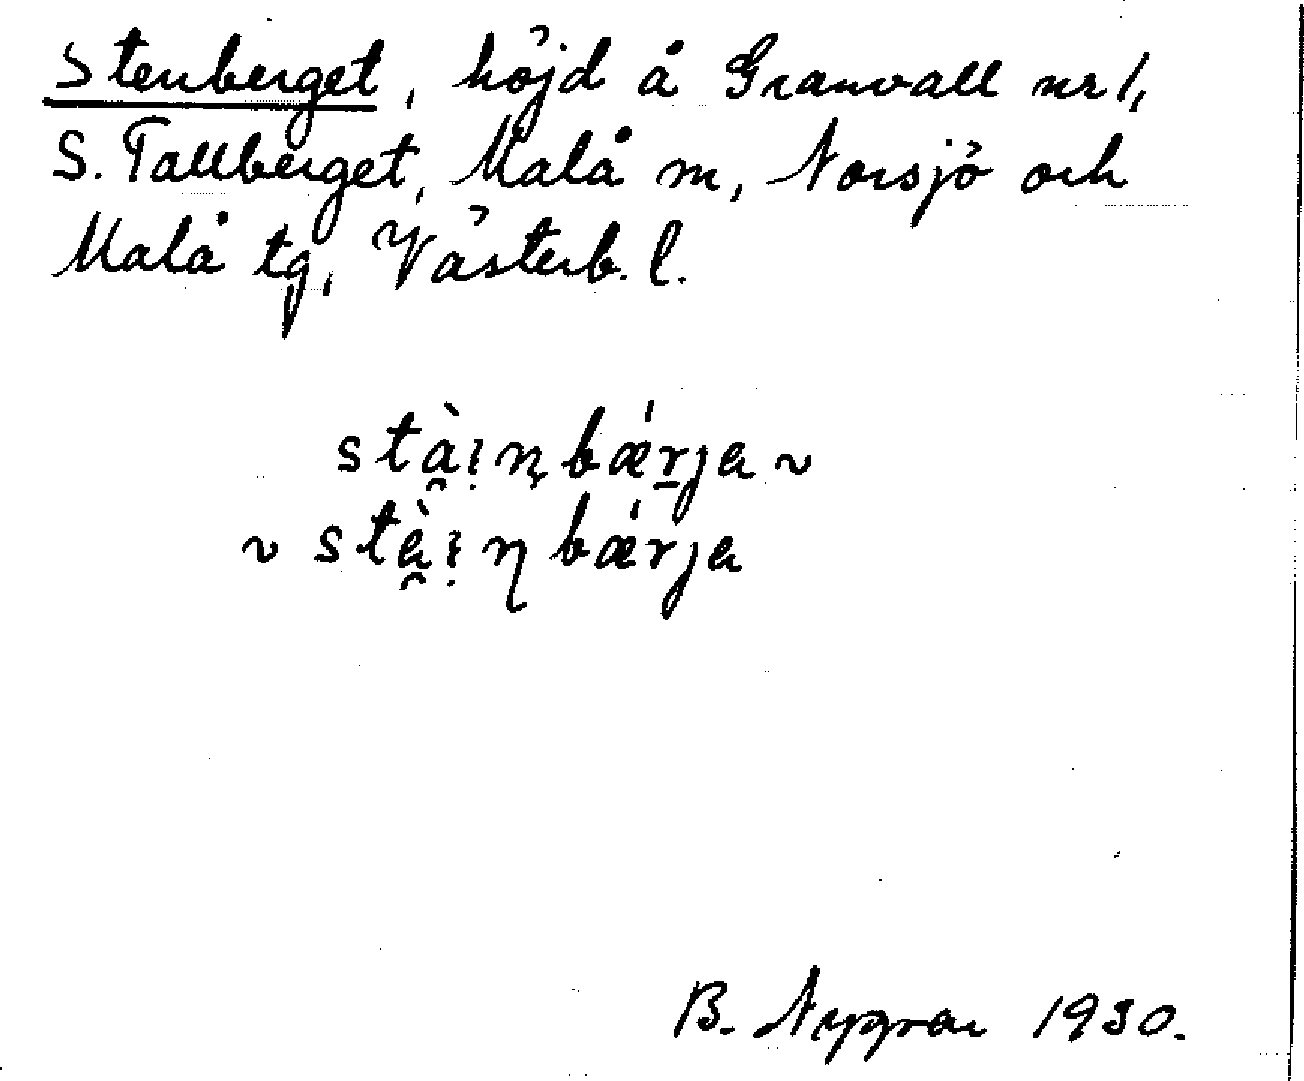 Stenberget, höjd å Granvall nr 1,
S. Tallberget, Malå m, Norsjö och
Malå tg, Västerb. l.
stà̯ı̣n̨bǽr̲ja ~
~ stà̯ı̣ƞbǽrja
B. Nygren 1930.